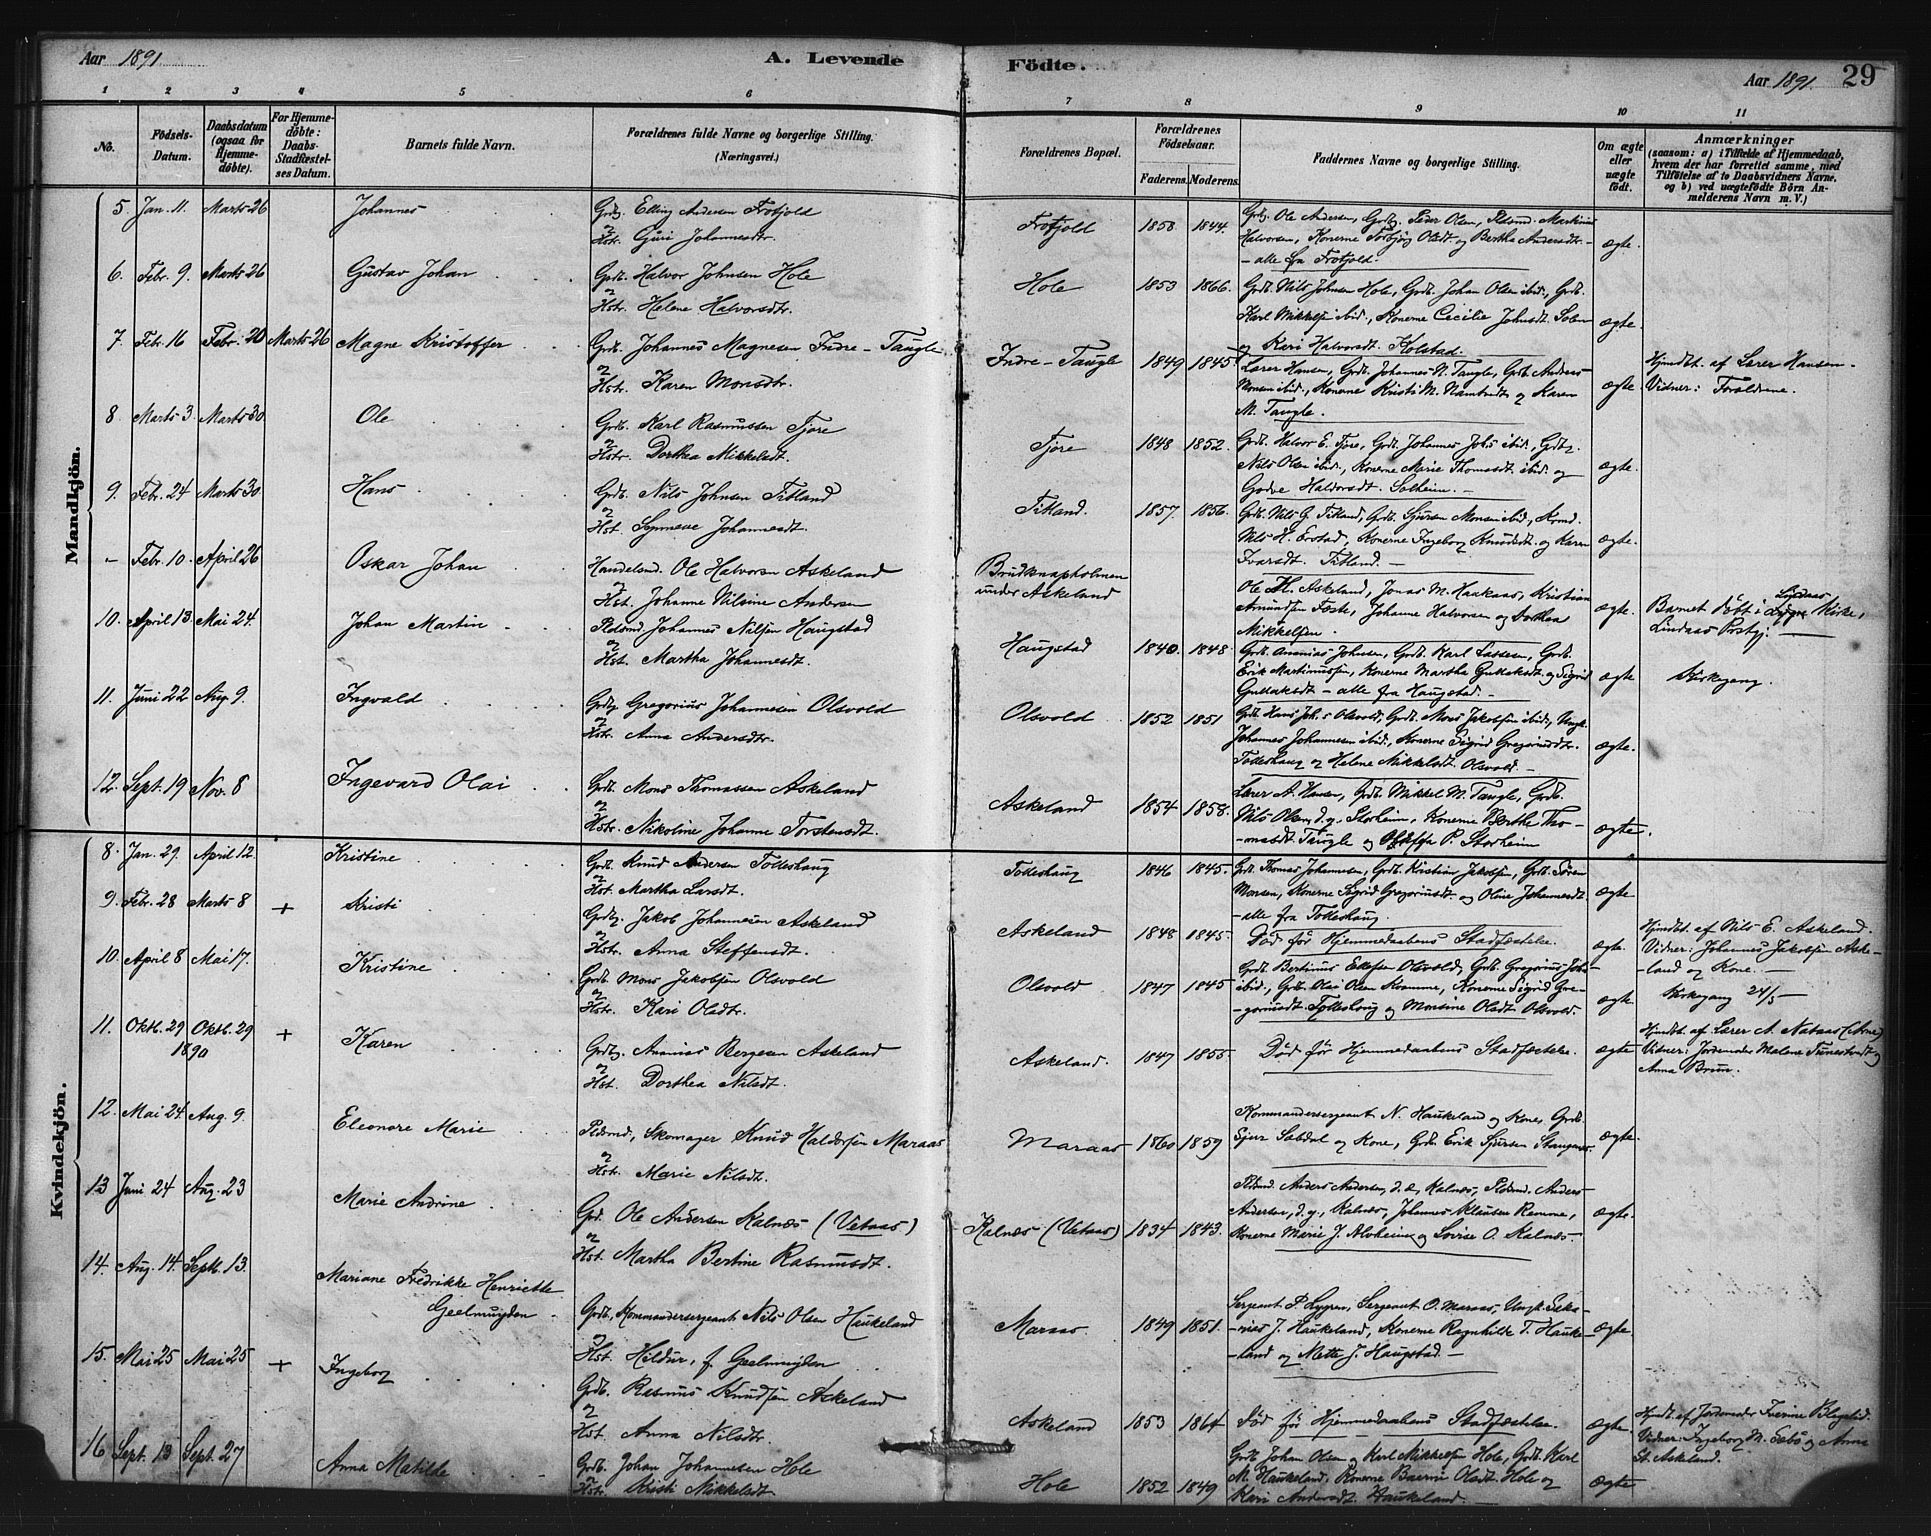 Aar 1891
A. Levende Födte.
Aar 1891. 29
1 2 3 4 5 6 7 8 9 10 11
No.
Födsels-Datum.
Daabsdatum (ogsaa for Hjemme-döbte).
For Hjemme-döbte: Daabs-Stadfæstel-ses Datum.
Barnets fulde Navn.
Forældrenes fulde Navne og borgerlige Stilling. (Næringsvei.)
Forældrenes Bopæl.
Forældrenes Födselsaar.
Faderens. Moderens.
Faddernes Navne og borgerlige Stilling.
Om ægte eller uægte födt.
Anmærkninger
(saasom: a) i Tilfælde af Hjemmedaab, hvem der har forrettet samme, med Tilföielse af to Daabsvidners Navne, og b) ved uægtefödte Börn An-melderens Navn m. V.)
Mandkjön.
5. Jan. 11. Marts 26 Johannes Grdbr. Elling Andersen Frotjold
& Hstr. Guri Johannesdtr. Frotjold 1858 1844.
Grdbr. Ole Andersen, Grdbr. Peder Olsen, Pldsmd. Martinus
Halvorsen, Konerne Torbjörg Olsdt. og Bertha Andersdtr.
- alle fra Frotjold. ægte.
6. Febr. 9. Marts 26 Gustav Johan Grdb. Halvor Johnsen Hole
& Hstr. Helene Halvorsdtr. Hole 1853 1866.
Grdb. Nils Johnsen Hole, Grdb. Johan Olsen ibid., Grdb.
Karl Mikkelsen ibid., Konerne Cecilie Johnsdt. Solem
og Kari Halvorsdt. Kolstad. ægte.
7. Febr. 16 Febr. 20 Marts 26 Magne Kristoffer Grdb. Johannes Magnesen Indre-Taugle
& Hstr. Karen Monsdtr. Indre-Taugle 1849 1845.
Lærer Hansen, Grdb. Johannes N. Taugle, Grdb. Andreas
Monsen ibid., Konerne Kristi M. Namtvedt og Karen
M. Taugle. ægte.
Hjmdbt. af Lærer Hansen.
Vidner: Forældrene.
8. Marts 3. Marts 30. Ole Grdb. Karl Rasmussen Tjore
& Hstr. Dorthea Mikkelsdt. Tjore 1848 1852.
Grdb. Halvor E. Tjore, Grdb. Johannes Johs. ibid., Grdbr.
Nils Olsen ibid., Konerne Marie Thomasdt. ibid. og
Godve Haldorsdt. Solheim. ægte.
9. Febr. 24 Marts 30 Hans Grdb. Nils Johnsen Titland
& Hst. Synneve Johannesdt. Titland. 1857. 1856.
Grdb. Nils G. Titland, Grdb. Sjursen Monsen ibid.,
Nils H. Erstad, Konerne Ingeborg Knudsdt. og Karen
Ivarsdt. Titland. ægte.
- Febr. 10. April 26 Oskar Johan Handelsmd. Ole Halvorsen Askeland
& Hst. Johanne Nilsine Andersen Brudknapholmen
under Askeland
Ole H. Askeland, Jonas M. Haakaas, Kristian
Amundsen Foste, Johanne Halvorsen og Dorthea
Mikkelsen. ægte.
Barnet döbt i Lygre Lindaas Kirke,
Lindaas Prstgj.
10. April 13. Mai 24. Johan Martin Pldsmd. Johannes Nilsen Haugstad
& Hst. Martha Johannesdt. Haugstad 1840. 1848.
Grdb. Ananias Johnsen, Grdb. Karl Lassesen, Grdb.
Erik Martinussen, Konerne Martha Gullaksdt. og Sigrid
Gullaksdt. - alle fra Haugstad. ægte
Kirkegang.
11. Juni 22 Aug. 9. Ingvald Grdbr. Gregorius Johannesen Olsvold
& Hstr. Anna Andersdtr. Olsvold 1852 1851
Grdb. Hans Joh.s Olsvold, Grdb. Mons Jakobsen ibid., Ungk.
Johannes Johannesen ibid., Konerne Sigrid Gregoriusdtr.
Tolleshaug og Helene Mikkelsdt. Olsvold. ægte.
12. Sept. 19 Nov. 8 Ingevard Olai Grdb. Mons Thomassen Askeland
& Hstr. Nikoline Johanne Torstensdt. Askeland 1854 1858.
Lærer A. Hansen, Grdb. Mikkel M. Taugle, Grdb.
Nils Olsen d.y. Storheim, Konerne Berthe Tho-
masdt. Taugle og P. Storheim ægte.
Kvindekjön.
8. Jan. 29. April 12. Kristine Grdb. Knud Andersen Tolleshaug
& Hst. Martha Larsdt. Tolleshaug 1846 1845.
Grdb. Thomas Johannesen, Grdb. Kristian Jakobsen, Grdb. Sören
Monsen, Konerne Sigrid Gregoriusdt. og Oline Johannesdt.
- alle fra Tolleshaug. ægte.
9. Febr. 28 Marts 8 + Kristi Grdbr. Jakob Johannesen Askeland
& Hstr. Anna Steffensdt. Askeland 1848 1845.
Död för Hjemmedaabens Stadfæstelse. ægte.
Hjmdbt. af Nils E. Askeland.
Vidner: Johannes Jakobsen Aske-
land og Kone.
10. April 8 Mai 17. Kristine Grdb. Mons Jakobsen Olsvold
& Hstr. Kari Olsdtr. Olsvold 1847 1845
Grdb. Bertinus Ellefsen Olsvold, Grdb. Gregorius Johs.
ibid., Grdb. Olai Olsen Kvamme, Konerne Sigrid Gre-
goriusdt. Tolleshaug og Monsine Olsdt. Olsvold. ægte
Kirkegang 24/5
11. Oktb. 29 1890 Oktb. 29 + Karen Grdbr. Ananias Bergesen Askeland
& Hst. Dorthea Nilsdt. Askeland. 1847 1855
Död för Hjemmedaabens Stadfæstelse. ægte
Hjmdbt. af Lærer A. Nataas (Arne)
Vidner: Jordemoder Malene Tunestvedt og
Anna Brun.
12. Mai 24. Aug. 9. Eleonore Marie Pldsmd., Skomager Knud Haldorsen Maraas
& Hstr. Marie Nilsdt. Maraas 1860 1859
Kommandersergeant N. Haukeland og Kone, Grdb.
Sjur Sabdal og Kone, Grdb. Erik Sjursen Stangenes. ægte.
13 Juni 24 Aug. 23 Marie Andrine Grd. Ole Andersen Kalnæs (Vetaas)
& Hst. Martha Bertine Rasmusdt. Kalnæs (Vetaas) 1834 1843.
Pldsmd. Anders Andersen, d.e. Kalnæs, Pldsmd. Anders
Andersen, d.y. Kalnæs, Johannes Klausen Remme,
Konerne Marie J. Alvheim og Lovise O. Kalnæs. ægte.
14. Aug. 14. Septb. 13. Mariane Fredrikke Henriette
Geelmuyden. Grdb., Kommandersergeant Nils Olsen Haukeland
& Hst. Hildur, f. Geelmuyden Maraas. 1849 1851.
Sergeant P. Lygren, Sergeant O. Maraas, Ungk. Zaka-
rias J. Haukeland, Konerne Ragnhilde T. Hauke-
land og Mette J. Haugstad. ægte.
15. Mai 25 Mai 25 + Ingeborg Grdb. Rasmus Knudsen Askeland
& Hst. Anna Nilsdtr. Askeland 1853 1864
Död för Hjemmedaabens Stadfæstelse. ægte.
Hjmdt. af Jordemoder Iverine Blegstid.
Vidner: Ingeborg M. Sæbö og Anna
St. Askeland.
16 Sept. 13 Sept. 27 Anna Matilde Grdb. Johan Johannesen Hole
& Hstr. Kristi Mikkelsdt. Hole 1852 1849
Grdb. Johan Olsen og Karl Mikkelsen Hole, Grdb. Karl
M. Haukeland, Konerne Olsdt. Hole og
Kari Andersdt. Haukeland. ægte